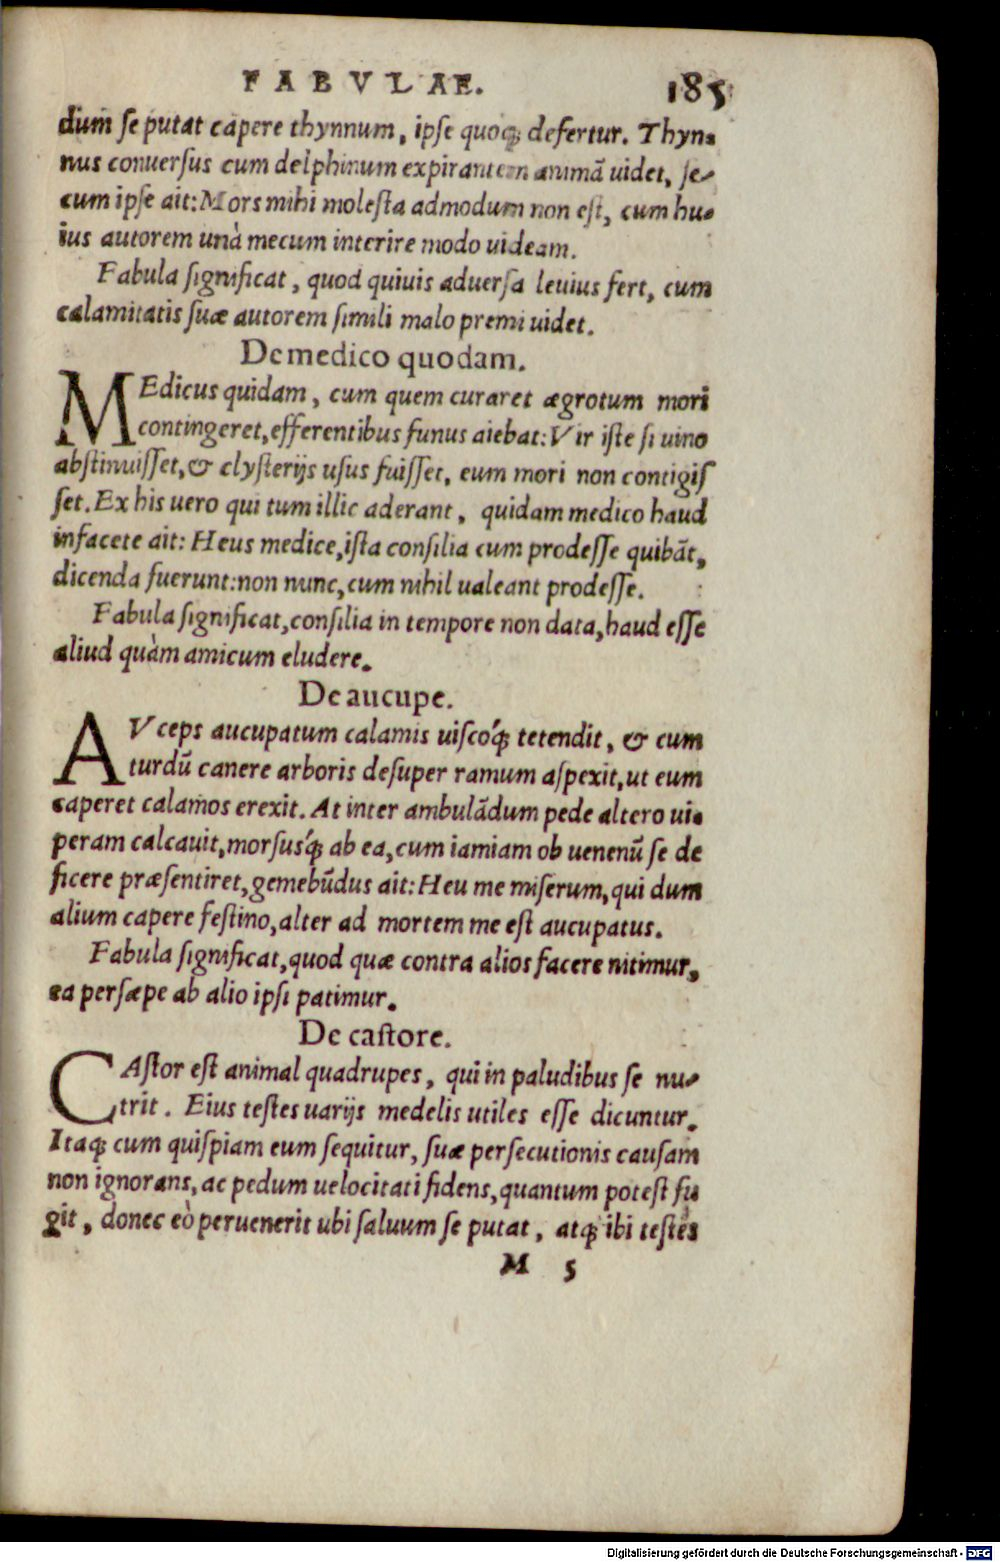 FABVLAE. 185
dum ſe putat capere thynnum, ipſe quoq; defertur. Thyn-
nus conuerſus cum delphinum expirantem animā uidet, ſe-
cum ipſe ait: Mors mihi moleſta admodum non eſt, cum hu-
ius autorem unà mecum interire modo uideam.
Fabula ſignificat, quod quiuis aduerſa leuius fert, cum
calamitatis ſuæ autorem ſimili malo premi uidet.
De medico quodam.
MEdicus quidam, cum quem curaret ægrotum mori
contingeret, efferentibus funus aiebat: Vir iſte ſi uino
abſtinuiſſet, & clyſterijs uſus fuiſſet, eum mori non contigiſ
ſet. Ex his uero qui tum illic aderant, quidam medico haud
infacete ait: Heus medice, iſta conſilia cum prodeſſe quibāt,
dicenda fuerunt: non nunc, cum nihil ualeant prodeſſe.
Fabula ſignificat, conſilia in tempore non data, haud eſſe
aliud quàm amicum eludere.
De aucupe.
AVceps aucupatum calamis uiſcóq; tetendit, & cum
turdū canere arboris deſuper ramum aſpexit, ut eum
caperet calamos erexit. At inter ambulādum pede altero ui-
peram calcauit, morſusq́; ab ea, cum iamiam ob uenenū ſe de
ficere præſentiret, gemebūdus ait: Heu me miſerum, qui dum
alium capere feſtino, alter ad mortem me eſt aucupatus.
Fabula ſignificat, quod quæ contra alios facere nitimur,
ea perſæpe ab alio ipſi patimur.
De caſtore.
CAſtor eſt animal quadrupes, qui in paludibus ſe nu-
trit. Eius teſtes uarijs medelis utiles eſſe dicuntur.
Itaq; cum quiſpiam eum ſequitur, ſuæ perſecutionis cauſam
non ignorans, ac pedum uelocitati fidens, quantum poteſt fu
git, donec eò peruenerit ubi ſaluum ſe putat, atq; ibi teſtes
M 5
Digitalisierung gefördert durch die Deutsche Forschungsgemeinschaft - DFG